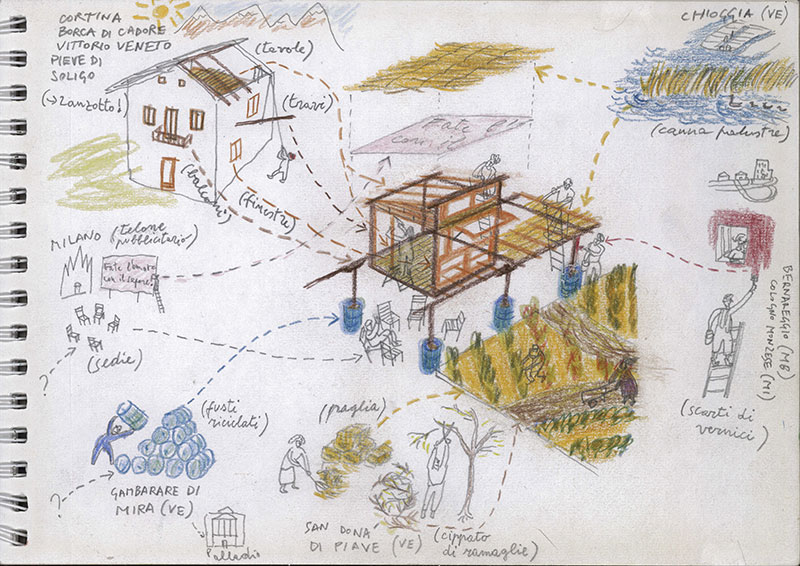 CORTINA
BORCA DI CADORE
VITTORIO VENETO
PIEVE DI
SOLIGO
(→ Zanzotto!)
(tavole)
(travi)
(balconi)
(finestre)
CHIOGGIA (VE)
(canna palustre)
Fate l'
MILANO (telone
pubblicitario)
Fate l'amore
con il sapore!
(sedie)
?
BERNAREGGIO (MB)
COLOGNO MONZESE (MI)
(scarti di
vernici)
(fusti
riciclati)
GAMBARARE DI
MIRA (VE)
?
Palladio
(paglia)
SAN DONÀ
DI PIAVE (VE)
(cippato
di ramaglie)